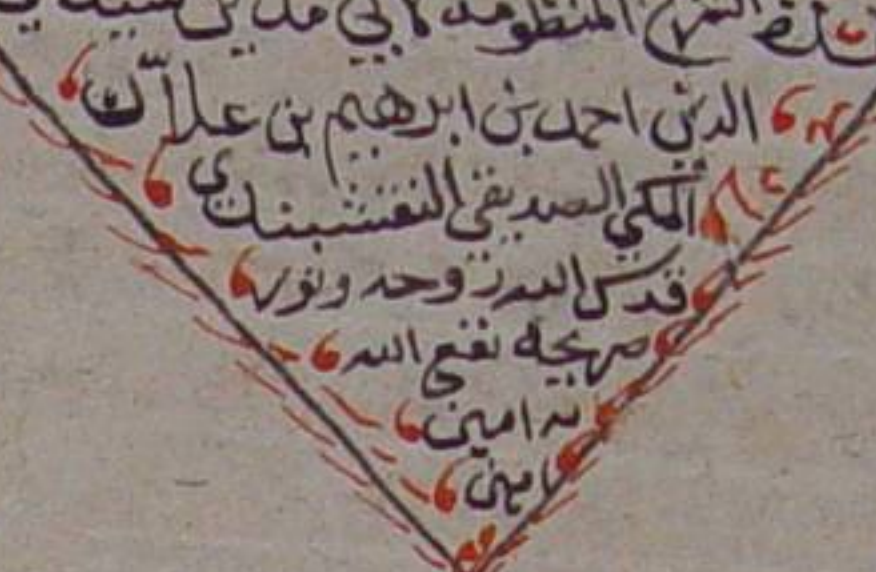 المنظومة لابي مدين
الدين احمد بن ابرهيم بن علان
المكي الصديقي النقشبندي
قدس الله روحه ونور
ضريحه نفع الله
به امين
امين